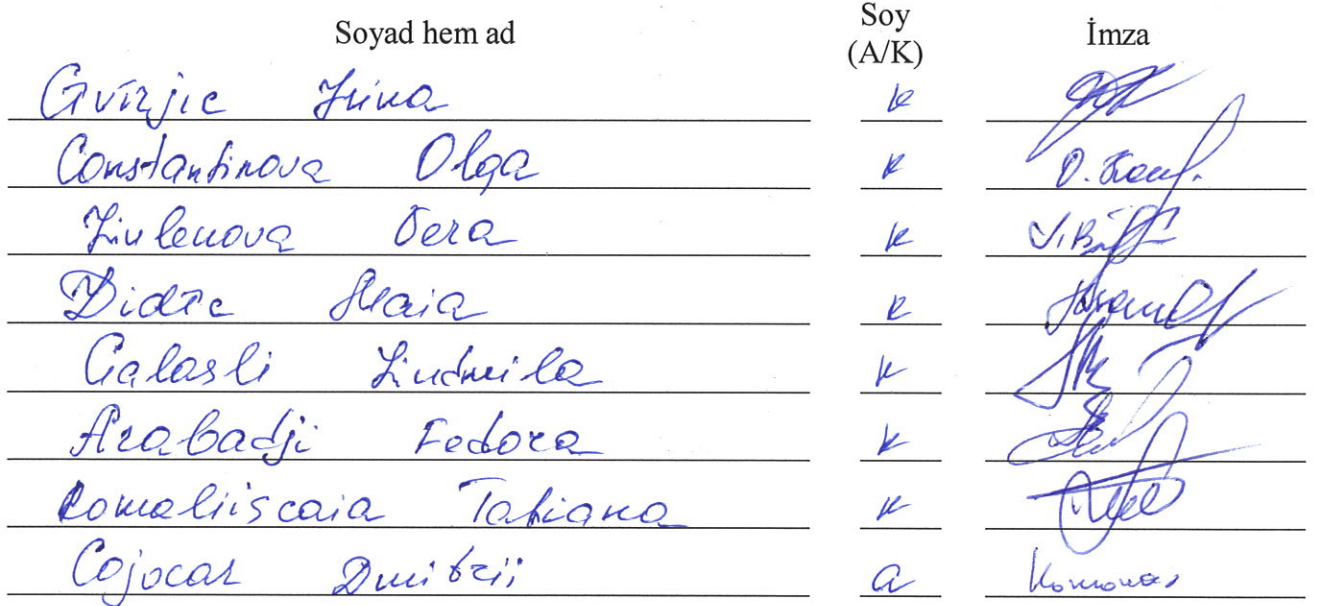 Soyad hem ad Soy (A/K) İmza
Gvîrjic Irina K
Constantinova Olga K O. Konf.
Jiulenova Vera K
Didîc Maia K
Calasli Liudmila K
Arabadji Fedora K
Tatiana K
Cojocar Dmitrii a